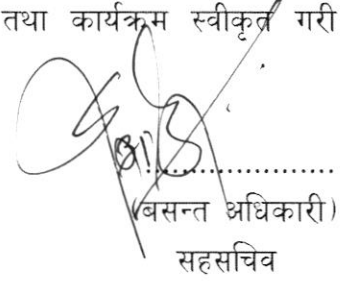 तथा कार्यक्रम स्वीकृत गरी
.....................
(बसन्त अधिकारी)
सहसचिव